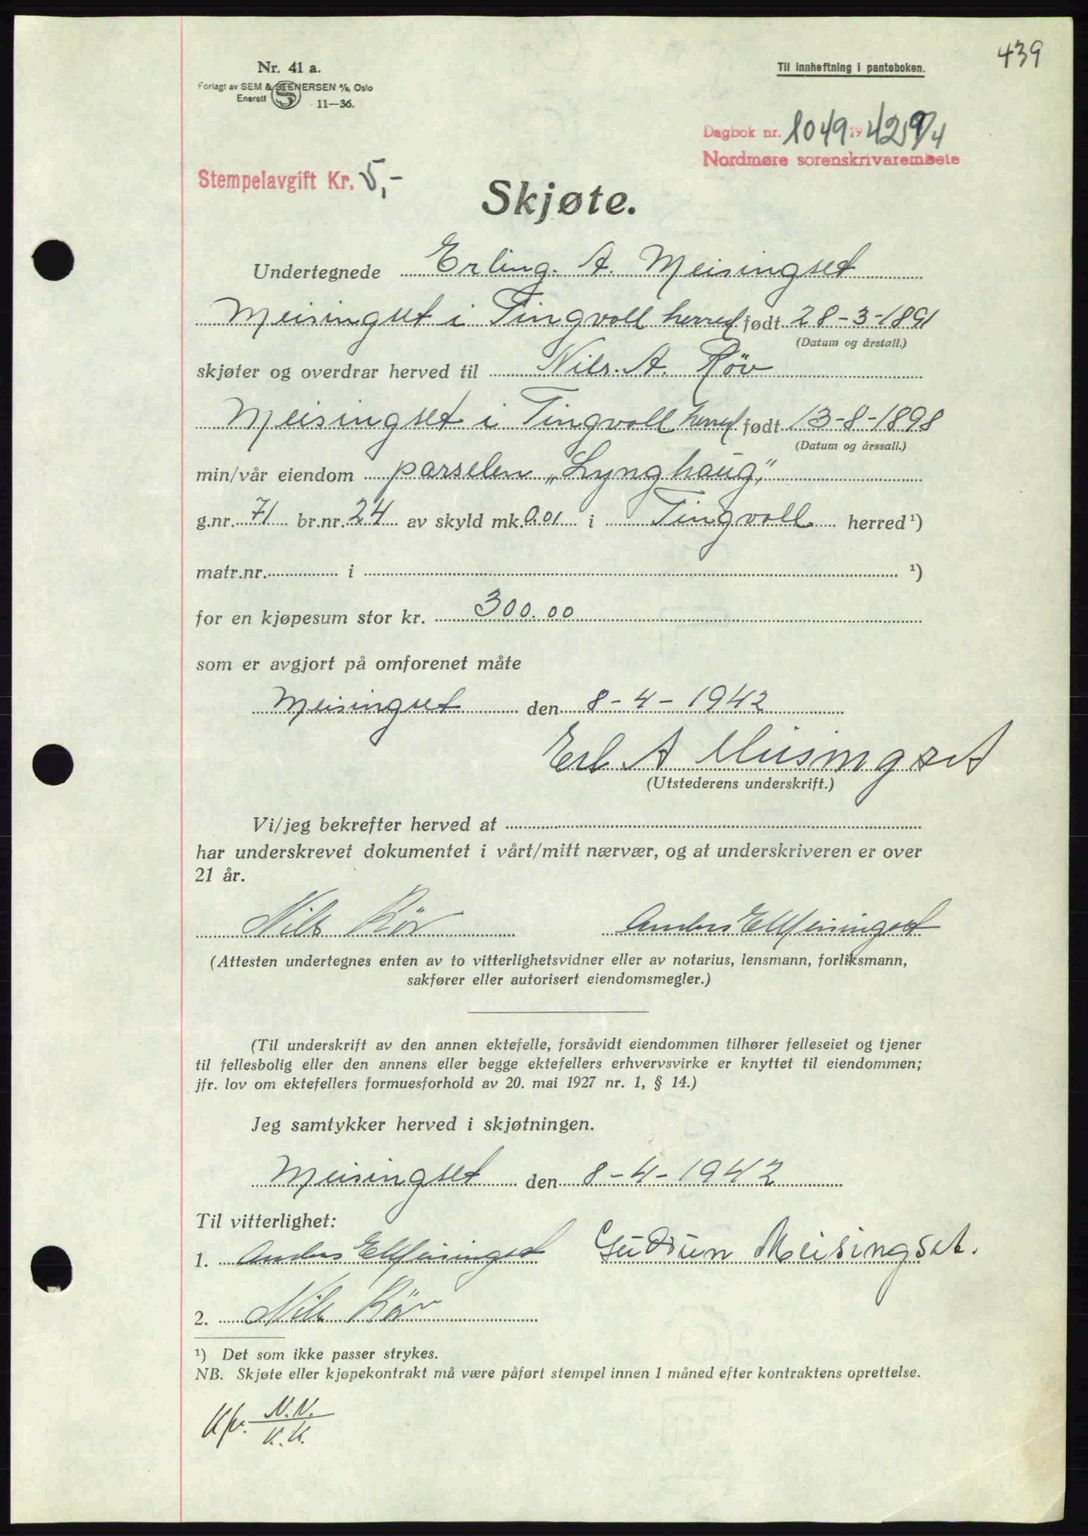 439
Nr. 41 a.
Til innheftning i panteboken.
Forlagt av SEM & STENERSEN A/S, Oslo
Enerett S 11—36.
Dagbok nr. 1049 1942 9/4
Nordmøre sorenskrivarembete
Stempelavgift Kr. 5,-
Skjøte.
Undertegnede Erling. A. Meisingset
Meisingset i Tingvoll herred født 28-3-1891
(Datum og årstall.)
skjøter og overdrar herved til Nils. A. Röv
Meisingset i Tingvoll herred født 13-8-1898
(Datum og årssall.)
min/vår eiendom parselen „Lynghaug,"
g.nr. 71 br.nr. 24 av skyld mk. 0.01 i Tingvoll herred ¹)
matr.nr. i ¹)
for en kjøpesum stor kr. 300.00
som er avgjort på omforenet måte
Meisingset den 8-4-1942
Erl. A Meisingset
(Utstederens underskrift.)
Vi/jeg bekrefter herved at
har underskrevet dokumentet i vårt/mitt nærvær, og at underskriveren er over
21 år.
Nils Röv Anders E Meisingset
(Attesten undertegnes enten av to vitterlighetsvidner eller av notarius, lensmann, forliksmann,
sakfører eller autorisert eiendomsmegler.)
(Til underskrift av den annen ektefelle, forsåvidt eiendommen tilhører felleseiet og tjener
til fellesbolig eller den annens eller begge ektefellers erhvervsvirke er knyttet til eiendommen;
jfr. lov om ektefellers formuesforhold av 20. mai 1927 nr. 1, § 14.)
Jeg samtykker herved i skjøtningen.
Meisingset den 8-4-1942
Til vitterlighet:
1. Anders E Meisingset Gudrun Meisingset.
2. Nils Röv
¹) Det som ikke passer strykes.
NB. Skjøte eller kjøpekontrakt må være påført stempel innen 1 måned efter kontraktens oprettelse.
N.N.
K.K.